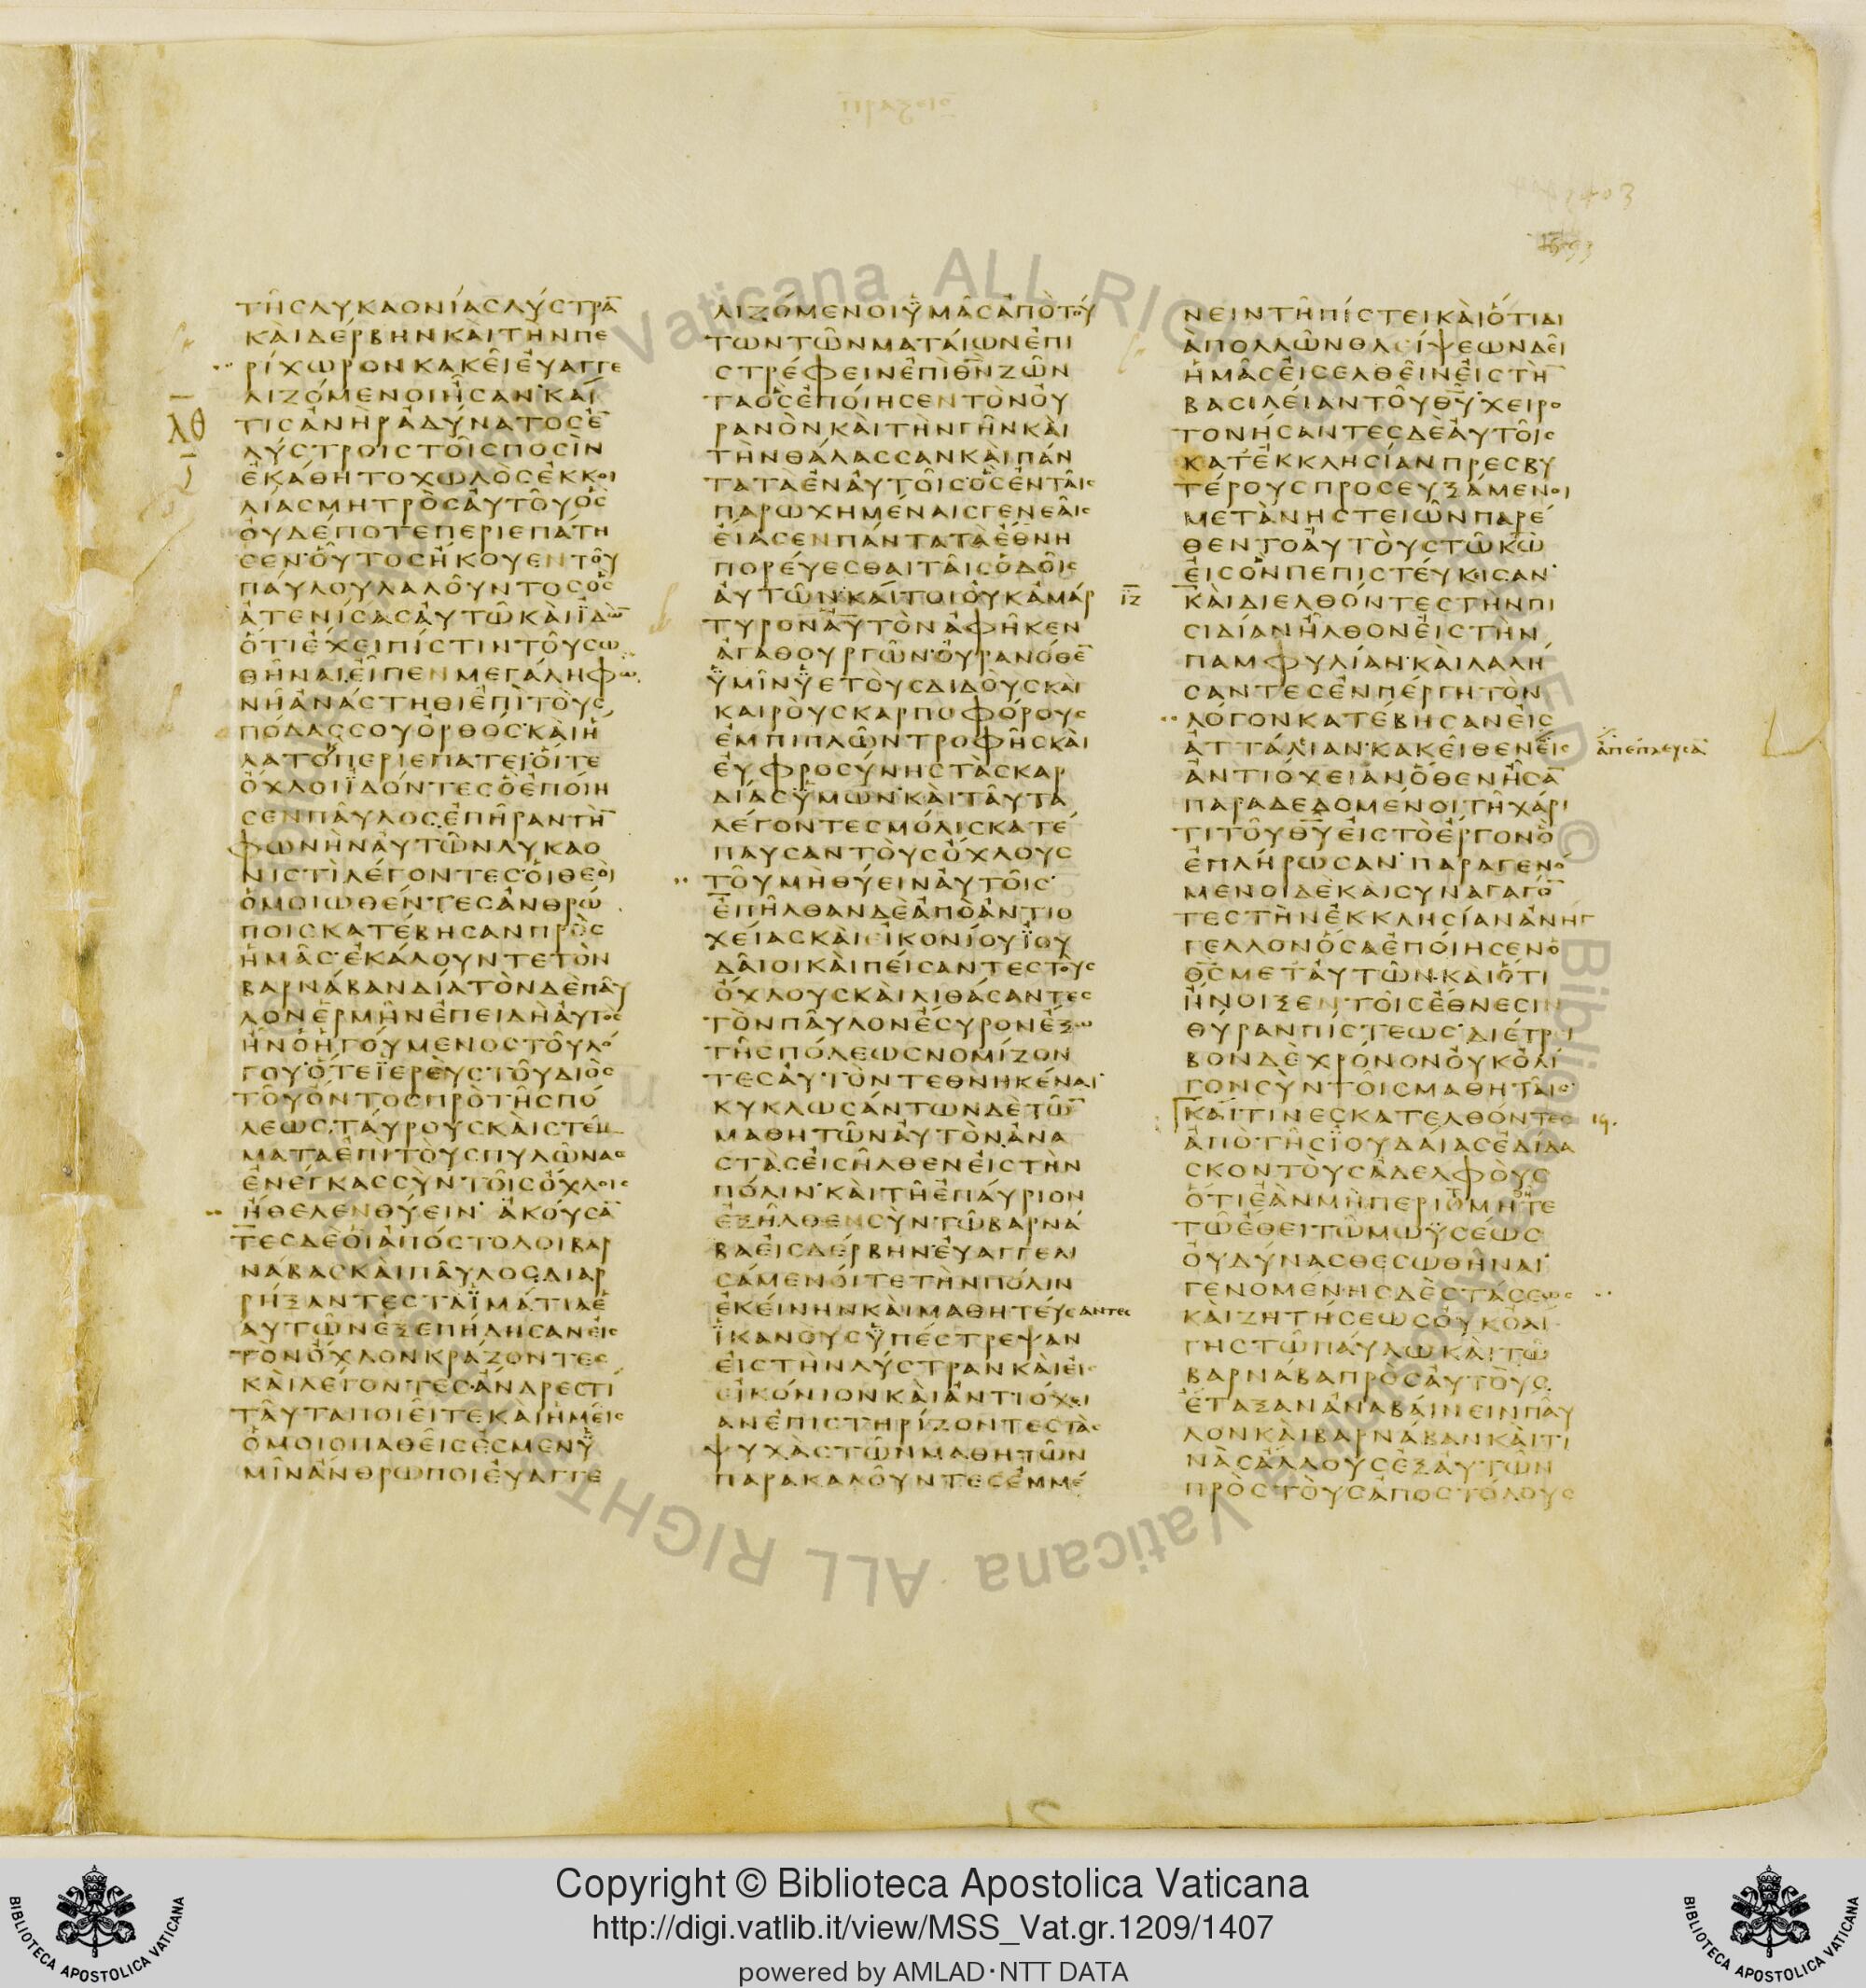 ΤΗϹΛΥΚΑΟΝΙΑϹΛΥϹΤΡΑ̅
ΚΑΙΔΕΡΒΗΝΚΑΙΤΗΝΠΕ
ΡΙΧΩΡΟΝΚΑΚΕΙΕΥΑΓΓΕ
ΛΙΖΟΜΕΝΟΙΗϹΑΝ·ΚΑΙ
λθ
ΤΙϹΑΝΗΡΑΔΥΝΑΤΟϹΕ̅
ΛΥϹΤΡΟΙϹΤΟΙϹΠΟϹΙΝ
ΕΚΑΘΗΤΟΧΩΛΟϹΕΚΚΟΙ
ΛΙΑϹΜΗΤΡΟϹΑΥΤΟΥΟϹ
ΟΥΔΕΠΟΤΕΠΕΡΙΕΠΑΤΗ
ϹΕΝ·ΟΥΤΟϹΗΚΟΥΕΝΤΟΥ
ΠΑΥΛΟΥΛΑΛΟΥΝΤΟϹΟϹ
ΑΤΕΝΙϹΑϹΑΥΤΩΚΑΙΪΔΩ̅
ΟΤΙΕΧΕΙΠΙϹΤΙΝΤΟΥϹΩ
ΘΗΝΑΙΕΙΠΕΝΜΕΓΑΛΗΦΩ
ΝΗΑΝΑϹΤΗΘΙΕΠΙΤΟΥϹ
ΠΟΔΑϹϹΟΥΟΡΘΟϹ·ΚΑΙΗ
ΛΑΤΟΠΕΡΙΕΠΑΤΕΙ·ΟΙΤΕ
ΟΧΛΟΙΪΔΟΝΤΕϹΟΕΠΟΙΗ
ϹΕΝΠΑΥΛΟϹΕΠΗΡΑΝΤΗ̅
ΦΩΝΗΝΑΥΤΩΝΛΥΚΑΟ
ΝΙϹΤΙΛΕΓΟΝΤΕϹ·ΟΙΘΕΟΙ
ΟΜΟΙΩΘΕΝΤΕϹΑΝΘΡΩ
ΠΟΙϹΚΑΤΕΒΗϹΑΝΠΡΟϹ
ΗΜΑϹ·ΕΚΑΛΟΥΝΤΕΤΟΝ
ΒΑΡΝΑΒΑΝΔΙΑΤΟΝΔΕΠΑΥ
ΛΟΝΕΡΜΗΝΕΠΕΙΔΗΑΥΤΟϹ
ΗΝΟΗΓΟΥΜΕΝΟϹΤΟΥΛΟ
ΓΟΥ·ΟΤΕΪΕΡΕΥϹΤΟΥΔΙΟϹ
ΤΟΥΟΝΤΟϹΠΡΟΤΗϹΠΟ
ΛΕΩϹΤΑΥΡΟΥϹΚΑΙϹΤΕΜ
ΜΑΤΑΕΠΙΤΟΥϹΠΥΛΩΝΑϹ
ΕΝΕΓΚΑϹϹΥΝΤΟΙϹΟΧΛΟΙϹ
ΗΘΕΛΕΝΘΥΕΙΝ· ΑΚΟΥϹΑ̅
ΤΕϹΔΕΟΙΑΠΟϹΤΟΛΟΙΒΑΡ
ΝΑΒΑϹΚΑΙΠΑΥΛΟϹΔΙΑΡ
ΡΗΞΑΝΤΕϹΤΑΪΜΑΤΙΑΕ
ΑΥΤΩΝΕΞΕΠΗΔΗϹΑΝΕΙϹ
ΤΟΝΟΧΛΟΝΚΡΑΖΟΝΤΕϹ
ΚΑΙΛΕΓΟΝΤΕϹ·ΑΝΔΡΕϹΤΙ
ΤΑΥΤΑΠΟΙΕΙΤΕΚΑΙΗΜΕΙϹ
ΟΜΟΙΟΠΑΘΕΙϹΕϹΜΕΝΫ
ΜΙΝΑΝΘΡΩΠΟΙΕΥΑΓΓΕ
ΛΙΖΟΜΕΝΟΙΫΜΑϹΑΠΟΤΟΥ
ΤΩΝΤΩΝΜΑΤΑΙΩΝΕΠΙ
ϹΤΡΕΦΕΙΝΕΠΙΘ̅Ν̅ΖΩΝ
ΤΑΟϹΕΠΟΙΗϹΕΝΤΟΝΟΥ
ΡΑΝΟΝΚΑΙΤΗΝΓΗΝΚΑΙ
ΤΗΝΘΑΛΑϹϹΑΝΚΑΙΠΑΝ
ΤΑΤΑΕΝΑΥΤΟΙϹ·ΟϹΕΝΤΑΙϹ
ΠΑΡΩΧΗΜΕΝΑΙϹΓΕΝΕΑΙϹ
ΕΙΑϹΕΝΠΑΝΤΑΤΑΕΘΝΗ
ΠΟΡΕΥΕϹΘΑΙΤΑΙϹΟΔΟΙϹ
ΑΥΤΩΝ·ΚΑΙΤΟΙΟΥΚΑΜΑΡ
ΤΥΡΟΝΑΥΤΟΝΑΦΗΚΕΝ
ΑΓΑΘΟΥΡΓΩΝ·ΟΥΡΑΝΟΘΕ̅
ΫΜΙΝΫΕΤΟΥϹΔΙΔΟΥϹΚΑΙ
ΚΑΙΡΟΥϹΚΑΡΠΟΦΟΡΟΥϹ
ΕΜΠΙΠΛΩΝΤΡΟΦΗϹΚΑΙ
ΕΥΦΡΟϹΥΝΗϹΤΑϹΚΑΡ
ΔΙΑϹΫΜΩΝ·ΚΑΙΤΑΥΤΑ
ΛΕΓΟΝΤΕϹΜΟΛΙϹΚΑΤΕ
ΠΑΥϹΑΝΤΟΥϹΟΧΛΟΥϹ
ΤΟΥΜΗΘΥΕΙΝΑΥΤΟΙϹ·
ΕΠΗΛΘΑΝΔΕΑΠΟΑΝΤΙΟ
ΧΕΙΑϹΚΑΙΕΙΚΟΝΙΟΥΪΟΥ
ΔΑΙΟΙΚΑΙΠΕΙϹΑΝΤΕϹΤΟΥϹ
ΟΧΛΟΥϹΚΑΙΛΙΘΑϹΑΝΤΕϹ
ΤΟΝΠΑΥΛΟΝΕϹΥΡΟΝΕΞΩ
ΤΗϹΠΟΛΕΩϹΝΟΜΙΖΟΝ
ΤΕϹΑΥΤΟΝΤΕΘΝΗΚΕΝΑΙ·
ΚΥΚΛΩϹΑΝΤΩΝΔΕΤΩ̅
ΜΑΘΗΤΩΝΑΥΤΟΝΑΝΑ
ϹΤΑϹΕΙϹΗΛΘΕΝΕΙϹΤΗΝ
ΠΟΛΙΝ·ΚΑΙΤΗΕΠΑΥΡΙΟΝ
ΕΞΗΛΘΕΝϹΥΝΤΩΒΑΡΝΑ
ΒΑΕΙϹΔΕΡΒΗΝ·ΕΥΑΓΓΕΛΙ
ϹΑΜΕΝΟΙΤΕΤΗΝΠΟΛΙΝ
ΕΚΕΙΝΗΝΚΑΙΜΑΘΗΤΕΥϹΑΝΤΕϹ
ΪΚΑΝΟΥϹΫΠΕϹΤΡΕΨΑΝ
ΕΙϹΤΗΝΛΥϹΤΡΑΝΚΑΙΕΙϹ
ΕΙΚΟΝΙΟΝΚΑΙΑΝΤΙΟΧΕΙ
ΑΝΕΠΙϹΤΗΡΙΖΟΝΤΕϹΤΑϹ
ΨΥΧΑϹΤΩΝΜΑΘΗΤΩΝ
ΠΑΡΑΚΑΛΟΥΝΤΕϹΕΜΜΕ
ΝΕΙΝΤΗΠΙϹΤΕΙΚΑΙΟΤΙΔΙ
ΑΠΟΛΛΩΝΘΛΕΙΨΕΩΝΔΕΙ
ΗΜΑϹΕΙϹΕΛΘΕΙΝΕΙϹΤΗ̅
ΒΑϹΙΛΕΙΑΝΤΟΥΘ̅Υ̅·ΧΕΙΡΟ
ΤΟΝΗϹΑΝΤΕϹΔΕΑΥΤΟΙϹ
ΚΑΤΕΚΚΛΗϹΙΑΝΠΡΕϹΒΥ
ΤΕΡΟΥϹΠΡΟϹΕΥΞΑΜΕΝΟΙ
ΜΕΤΑΝΗϹΤΕΙΩΝΠΑΡΕ
ΘΕΝΤΟΑΥΤΟΥϹΤΩΚ̅Ω̅
ΕΙϹΟΝΠΕΠΙϹΤΕΥΚΙϹΑΝ·
ΙΖ
ΚΑΙΔΙΕΛΘΟΝΤΕϹΤΗΝΠΙ
ϹΙΔΙΑΝΗΛΘΟΝΕΙϹΤΗΝ
ΠΑΜΦΥΛΙΑΝ·ΚΑΙΛΑΛΗ
ϹΑΝΤΕϹΕΝΠΕΡΓΗΤΟΝ
ΛΟΓΟΝΚΑΤΕΒΗϹΑΝΕΙϹ
ΑΤΤΑΛΙΑΝ·ΚΑΚΕΙΘΕΝΕΙϹ
ἀπέπλευσα̅
ΑΝΤΙΟΧΕΙΑΝΟΘΕΝΗϹΑ̅
ΠΑΡΑΔΕΔΟΜΕΝΟΙΤΗΧΑΡΙ
ΤΙΤΟΥΘ̅Υ̅ΕΙϹΤΟΕΡΓΟΝΟ
ΕΠΛΗΡΩϹΑΝ·ΠΑΡΑΓΕΝΟ
ΜΕΝΟΙΔΕΚΑΙϹΥΝΑΓΑΓΟ̅
ΤΕϹΤΗΝΕΚΚΛΗϹΙΑΝΑΝΗΓ
ΓΕΛΛΟΝΟϹΑΕΠΟΙΗϹΕΝΟ
Θ̅Ϲ̅ΜΕΤΑΥΤΩΝ·ΚΑΙΟΤΙ
ΗΝΟΙΞΕΝΤΟΙϹΕΘΝΕϹΙΝ
ΘΥΡΑΝΠΙϹΤΕΩϹ·ΔΙΕΤΡΙ
ΒΟΝΔΕΧΡΟΝΟΝΟΥΚΟΛΙ
ΓΟΝϹΥΝΤΟΙϹΜΑΘΗΤΑΙϹ·
ΚΑΙΤΙΝΕϹΚΑΤΕΛΘΟΝΤΕϹ
ΑΠΟΤΗϹΪΟΥΔΑΙΑϹΕΔΙΔΑ
ϹΚΟΝΤΟΥϹΑΔΕΛΦΟΥϹ
ΟΤΙΕΑΝΜΗΠΕΡΙΤΜΗΘΗΤΕ
ΤΩΕΘΕΙΤΩΜΩΫϹΕΩϹ
ΟΥΔΥΝΑϹΘΕϹΩΘΗΝΑΙ·
ΓΕΝΟΜΕΝΗϹΔΕϹΤΑϹΕΩϹ
ΚΑΙΖΗΤΗϹΕΩϹΟΥΚΟΛΙ
ΓΗϹΤΩΠΑΥΛΩΚΑΙΤΩ
ΒΑΡΝΑΒΑΠΡΟϹΑΥΤΟΥϹ
ΕΤΑΞΑΝΑΝΑΒΑΙΝΕΙΝΠΑΥ
ΛΟΝΚΑΙΒΑΡΝΑΒΑΝΚΑΙΤΙ
ΝΑϹΑΛΛΟΥϹΕΞΑΥΤΩΝ
ΠΡΟϹΤΟΥϹΑΠΟϹΤΟΛΟΥϹ
Copyright © Biblioteca Apostolica Vaticana
http://digi.vatlib.it/view/MSS_Vat.gr.1209/1407
powered by AMLAD·NTT DATA
BIBLIOTECA APOSTOLICA VATICANA
BIBLIOTECA APOSTOLICA VATICANA